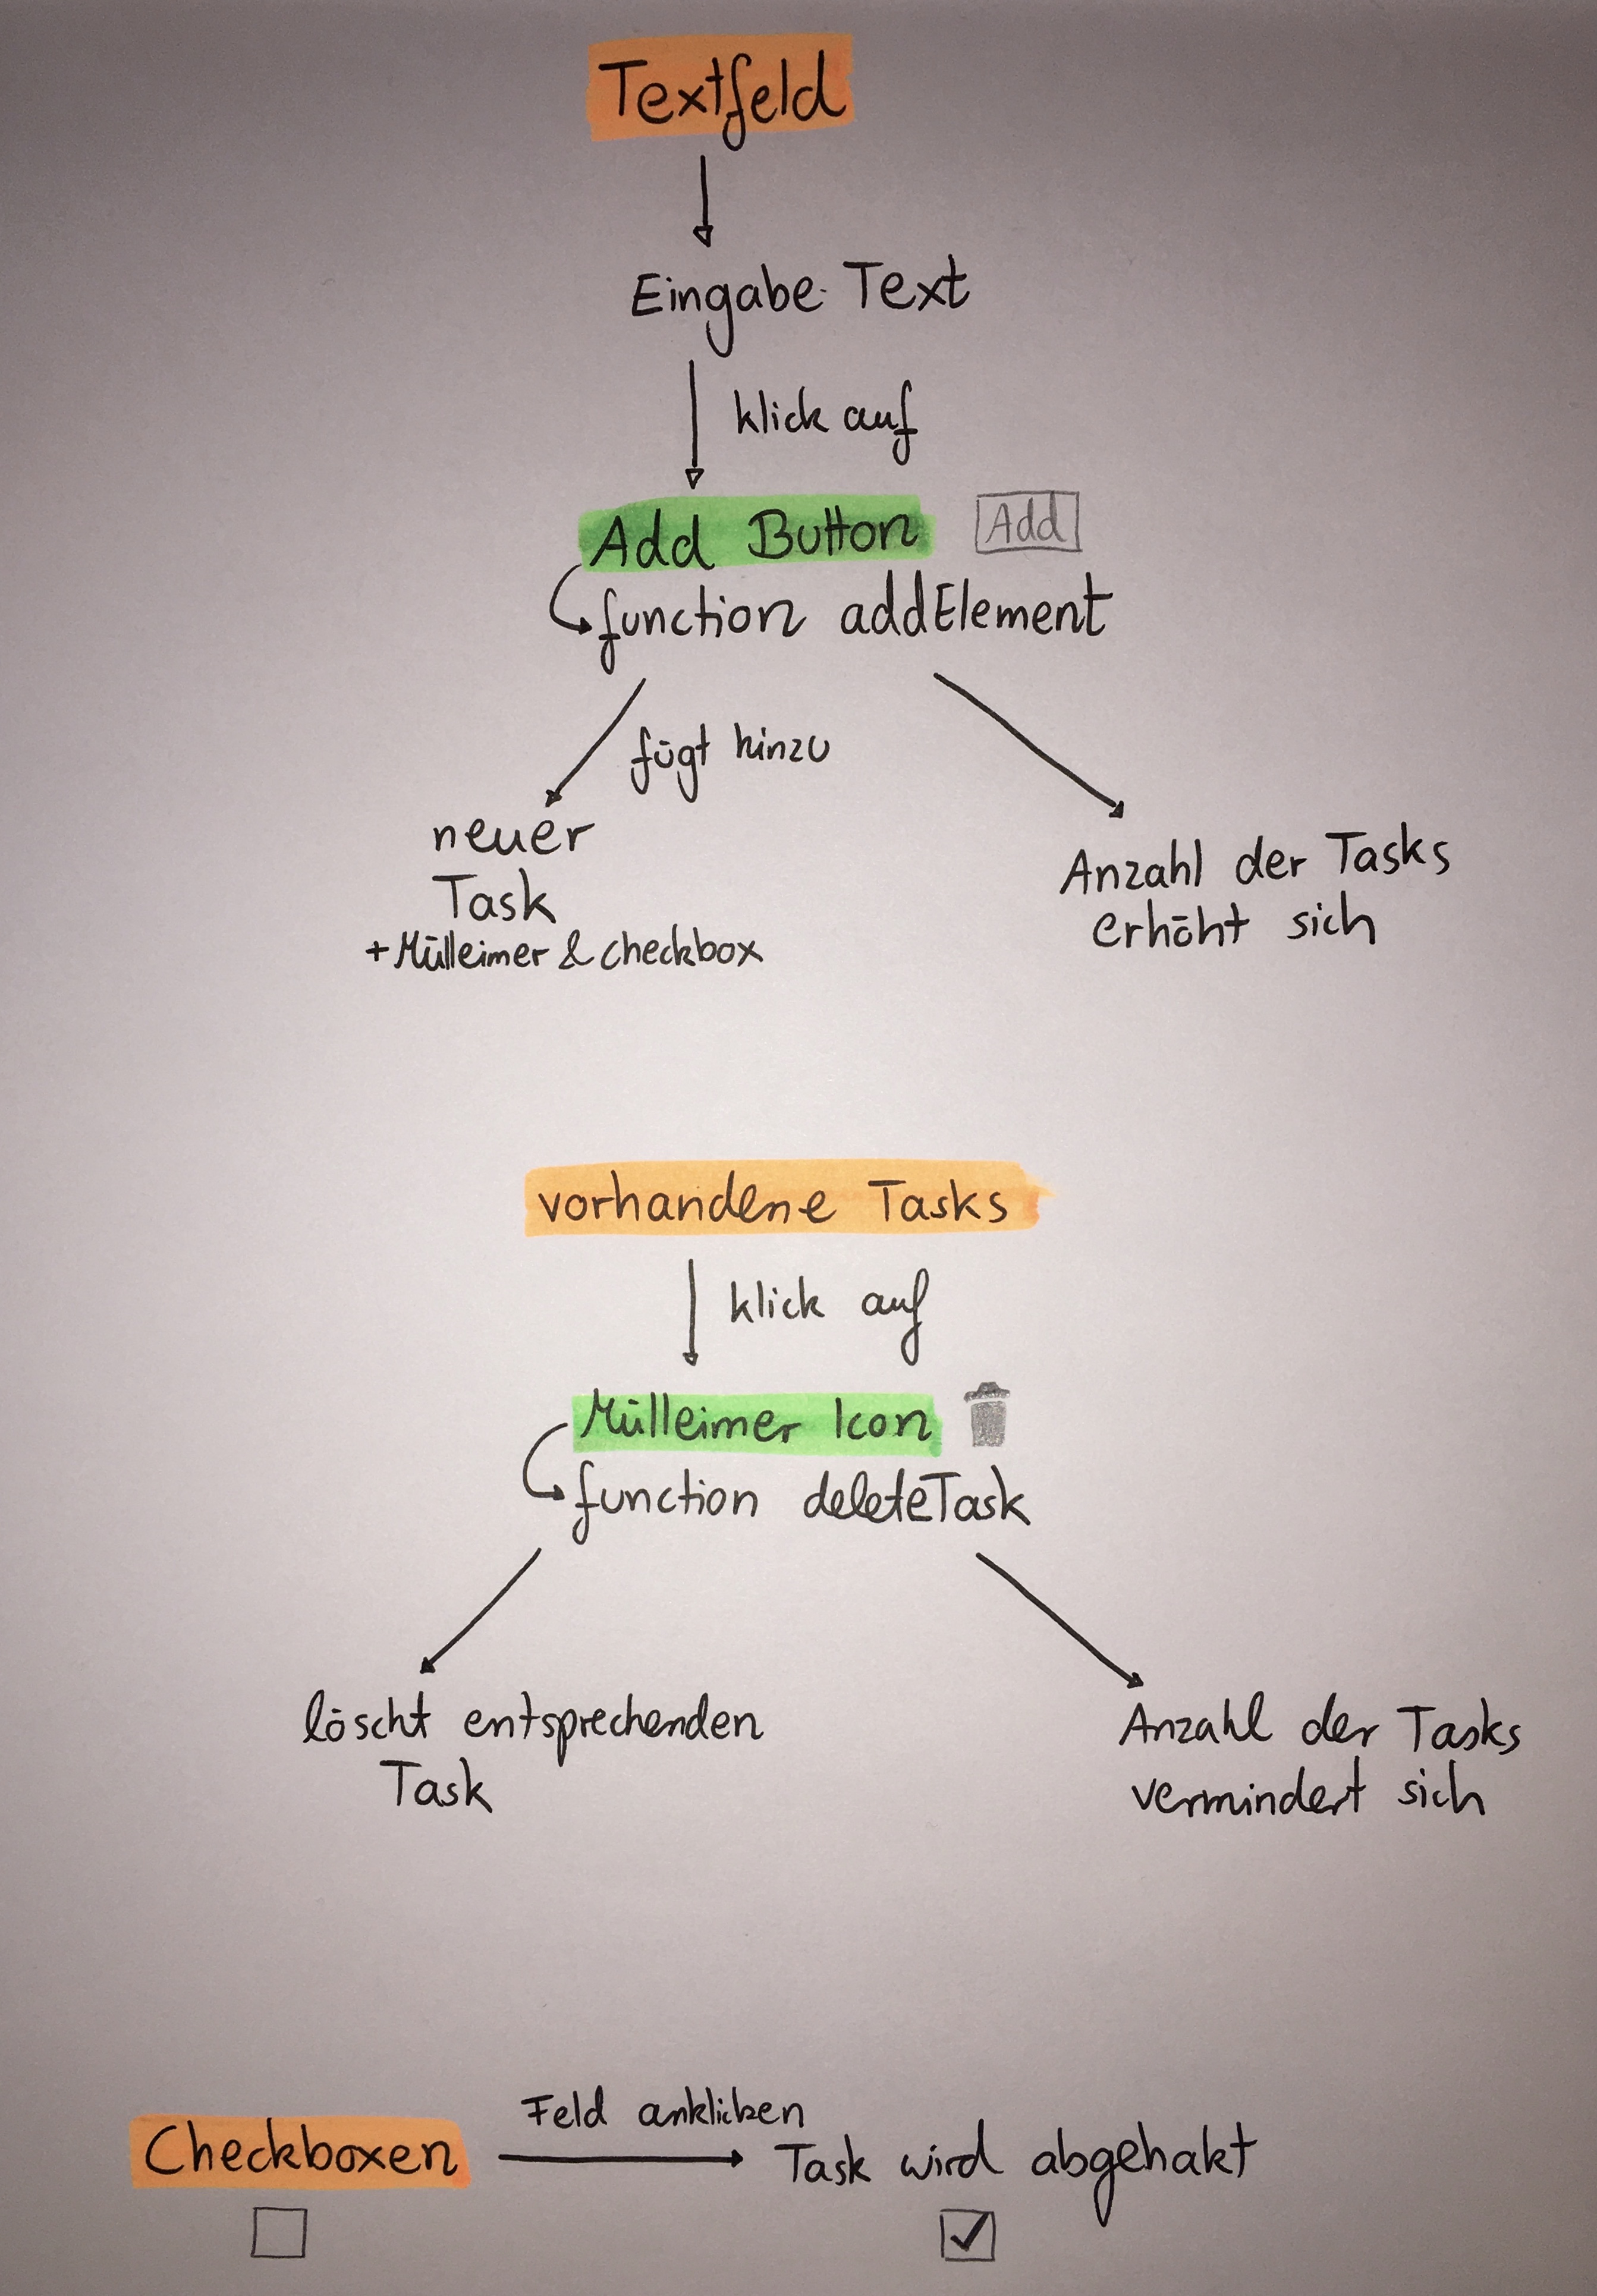 Textfeld
Eingabe Text
klick auf
Add Button
Add
function addElement
fügt hinzu
neuer
Task
+ Mülleimer & checkbox
Anzahl der Tasks
erhöht sich
vorhandene Tasks
klick auf
Mülleimer Icon
function deleteTask
löscht entsprechenden
Task
Anzahl der Tasks
vermindert sich
Feld anklicken
Checkboxen
Task wird abgehakt